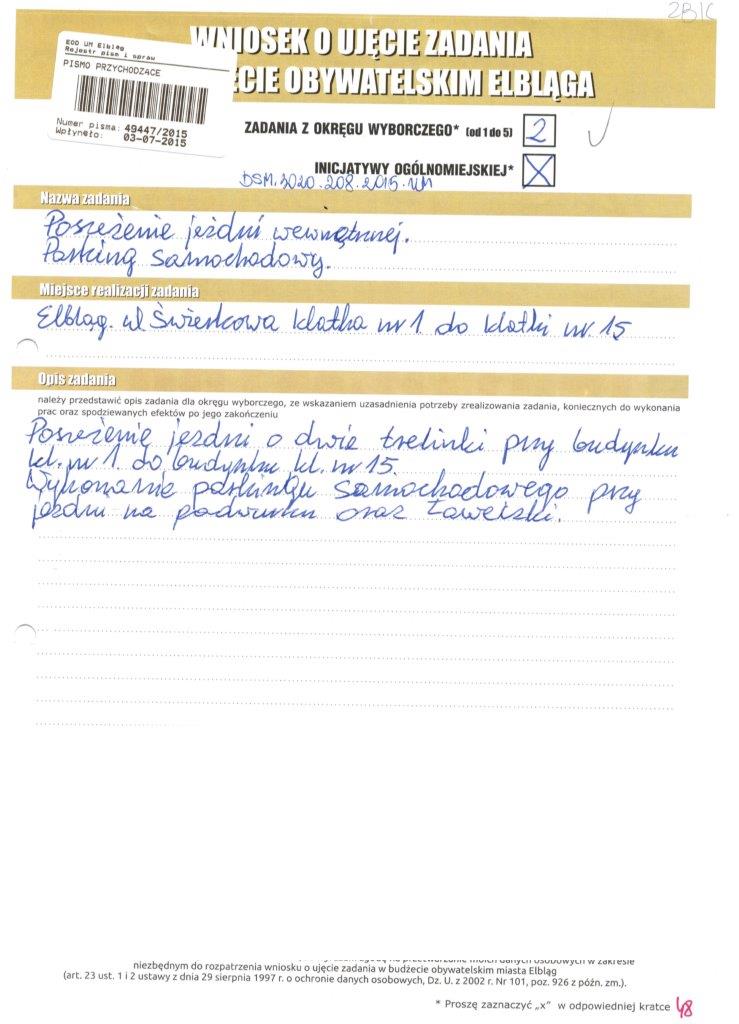 2B1C
WNIOSEK O UJĘCIE ZADANIA
ECIE OBYWATELSKIM ELBLĄGA
EOD UM Elbląg
Rejestr pism i spraw
PISMO PRZYCHODZĄCE
Numer pisma: 49447/2015
Wpłynęło: 03-07-2015
ZADANIA Z OKRĘGU WYBORCZEGO* (od 1 do 5) 2
INICJATYWY OGÓLNOMIEJSKIEJ* X
DSM.3020.208.2015.UM
Nazwa zadania
Poszeżenie jezdni wewnętrznej.
Parking samochodowy.
Miejsce realizacji zadania
Elbląg. ul Świerkowa klatka nr 1 do klatki nr. 15
Opis zadania
należy przedstawić opis zadania dla okręgu wyborczego, ze wskazaniem uzasadnienia potrzeby zrealizowania zadania, koniecznych do wykonania
prac oraz spodziewanych efektów po jego zakończeniu
Poszeżenie jezdni o dwie trelinki przy budynku
kl. nr 1 do budynku kl. nr 15.
Wykonanie parkingu samochodowego przy
jezdni na podwórku oraz Ławeczki.
niezbędnym do rozpatrzenia wniosku o ujęcie zadania w budżecie obywatelskim miasta Elbląg
(art. 23 ust. 1 i 2 ustawy z dnia 29 sierpnia 1997 r. o ochronie danych osobowych, Dz. U. z 2002 r. Nr 101, poz. 926 z późn. zm.).
* Proszę zaznaczyć „x” w odpowiedniej kratce 48